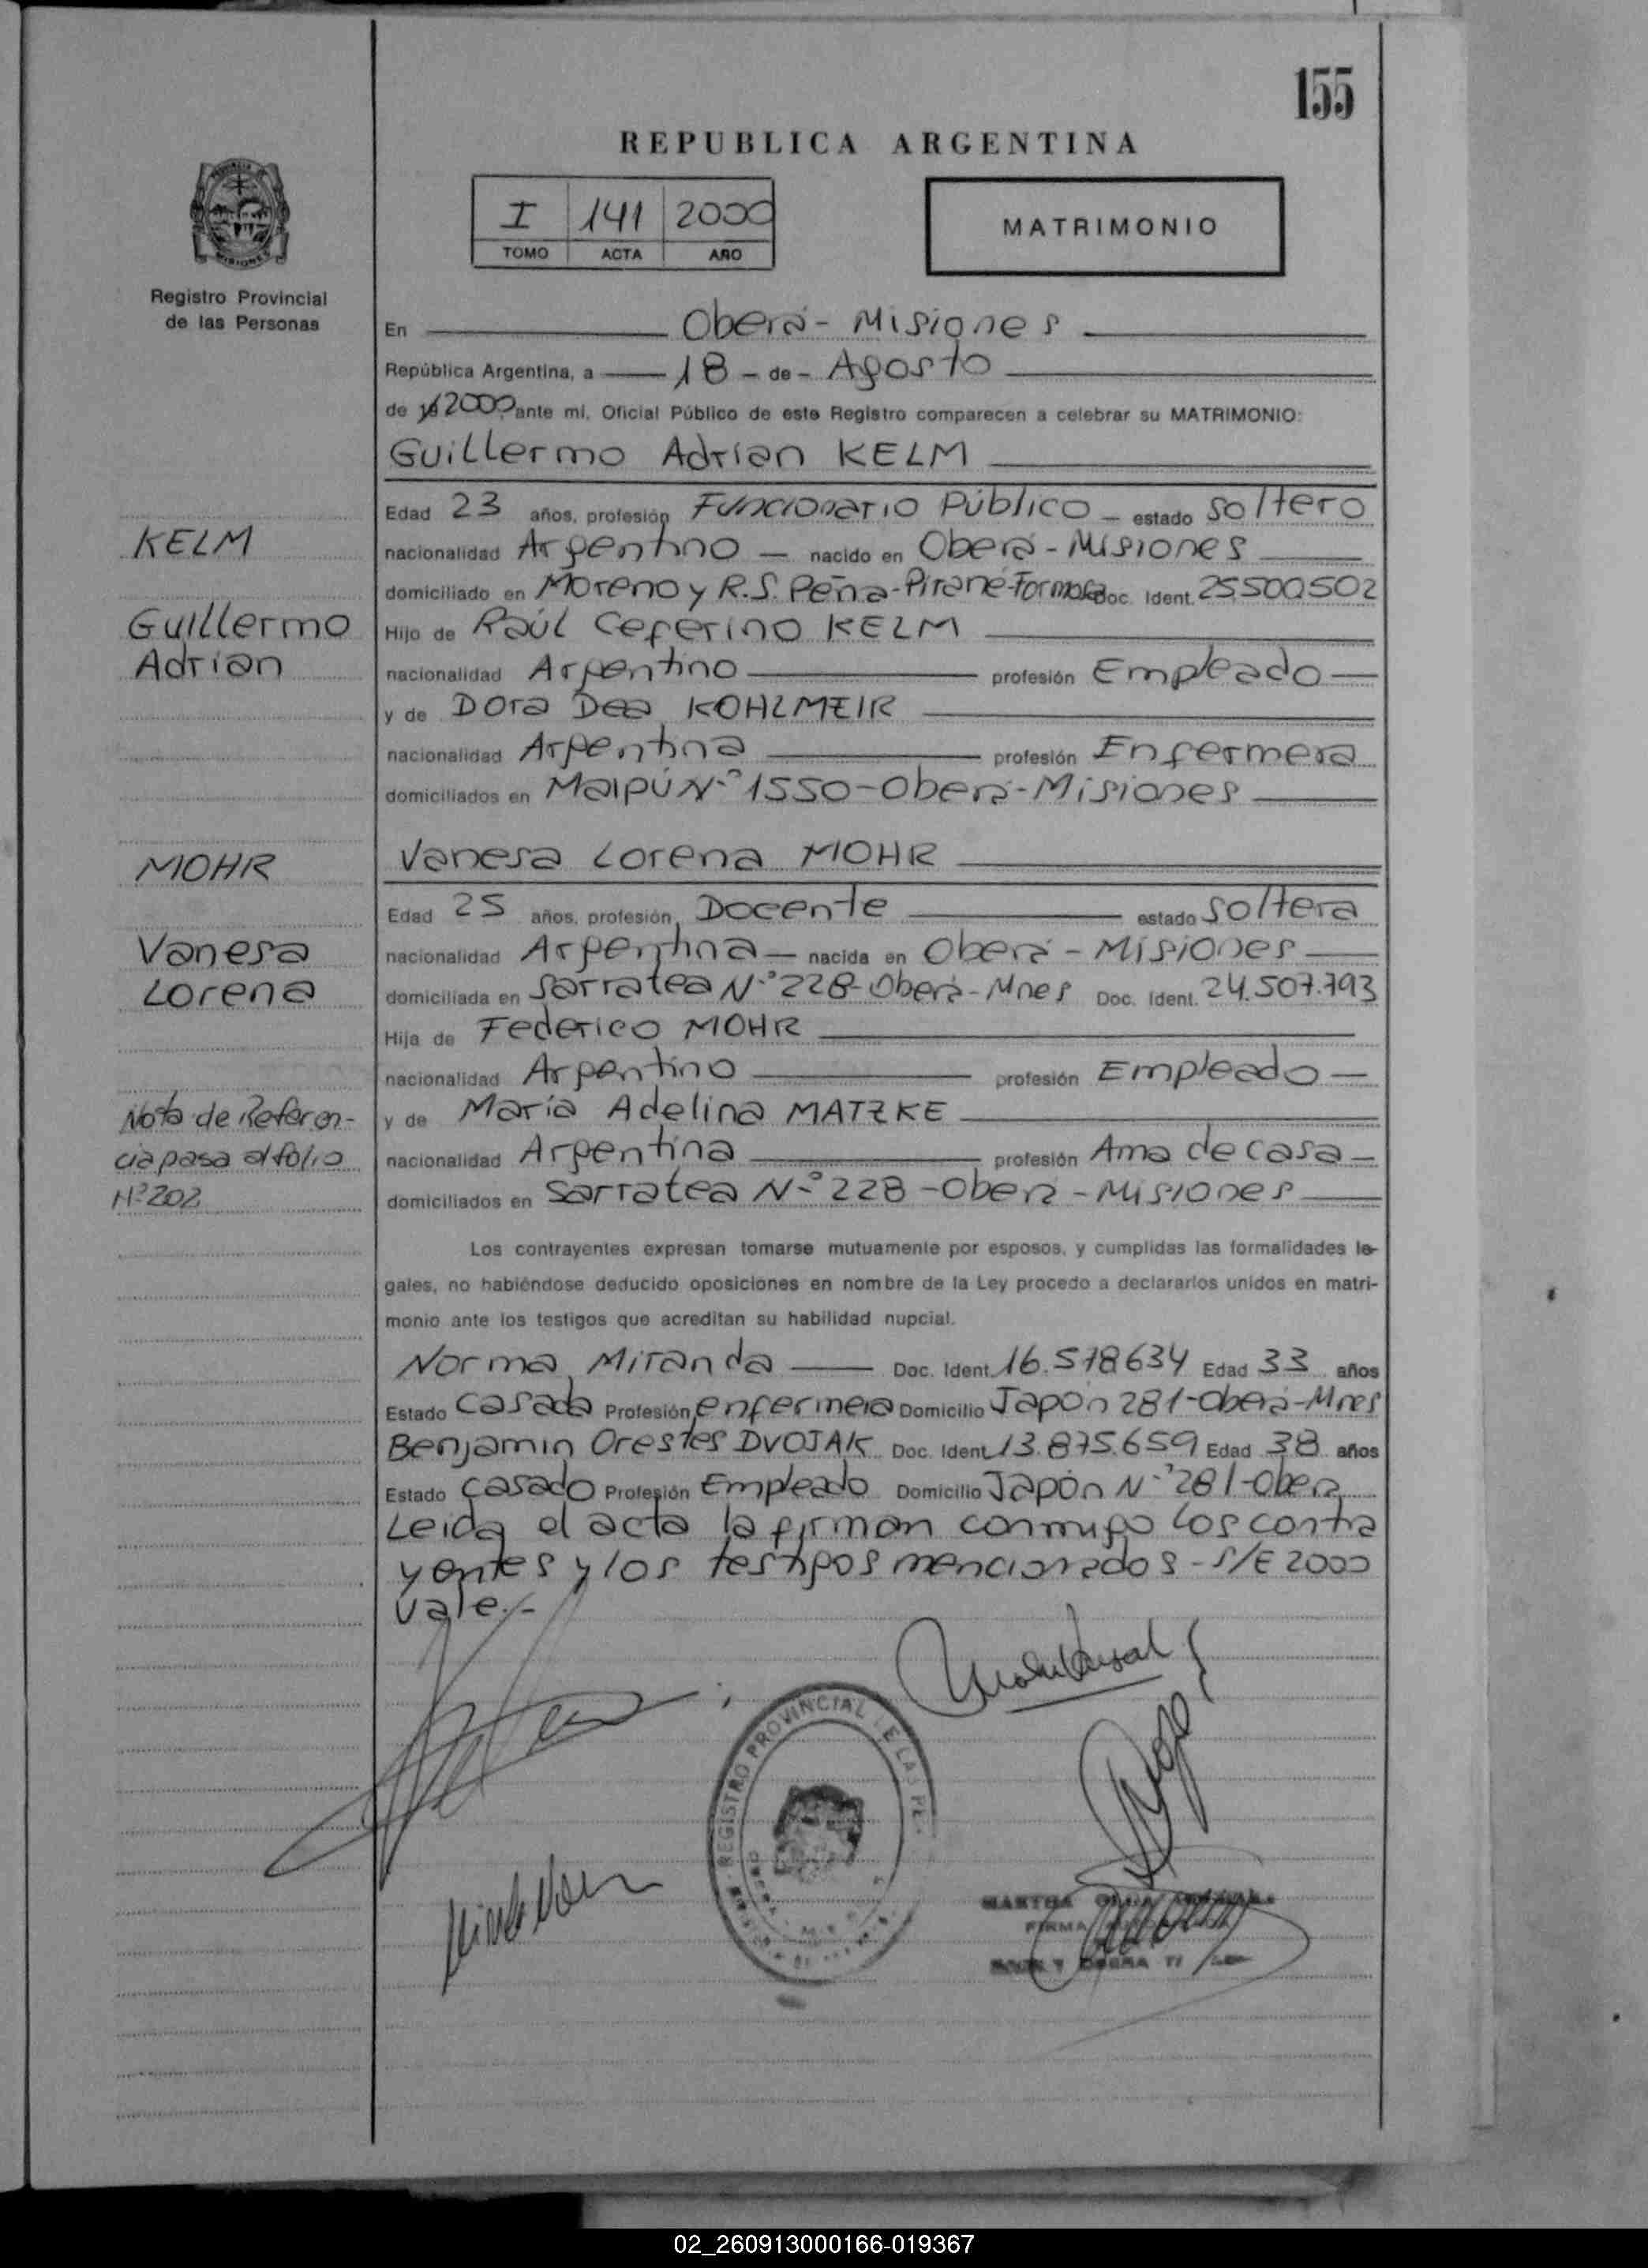 155
REPUBLICA ARGENTINA
I 141 2000
TOMO ACTA AÑO
MATRIMONIO
Registro Provincial
de las Personas
En Oberá - Misiones
República Argentina, a 18 - de - Agosto
de 2000 ante mí, Oficial Público de este Registro comparecen a celebrar su MATRIMONIO:
Guillermo Adrian KELM
Edad 23 años, profesión Funcionario Público - estado soltero
KELM
nacionalidad Argentino - nacido en Oberá - Misiones
domiciliado en Moreno y R.S. Peña - Pirané - Formosa Doc. Ident. 25.500.502
Guillermo
Hijo de Raúl Ceferino KELM
Adrian
nacionalidad Argentino profesión Empleado
y de Dora Dea KOHLMEIR
nacionalidad Argentina profesión Enfermera
domiciliados en Maipú Nº 1550 - Oberá - Misiones
MOHR
Vanesa Lorena MOHR
Edad 25 años, profesión Docente estado soltera
Vanesa
nacionalidad Argentina - nacida en Oberá - Misiones
Lorena
domiciliada en Sarratea Nº 228 - Oberá - Mnes Doc. Ident. 24.507.793
Hija de Federico MOHR
nacionalidad Argentino profesión Empleado -
Nota de Referen-
y de María Adelina MATZKE
cia pasa al folio
nacionalidad Argentina profesión Ama de casa -
Nº 202
domiciliados en Sarratea Nº 228 - Oberá - Misiones
Los contrayentes expresan tomarse mutuamente por esposos, y cumplidas las formalidades le-
gales, no habiéndose deducido oposiciones en nombre de la Ley procedo a declararlos unidos en matri-
monio ante los testigos que acreditan su habilidad nupcial.
Norma Miranda Doc. Ident. 16.578634 Edad 33 años
Estado Casada Profesión enfermera Domicilio Japón 281 - Oberá - Mnes
Benjamin Orestes DVOJAK Doc. Ident. 13.875.659 Edad 38 años
Estado casado Profesión Empleado Domicilio Japón Nº 281 - Oberá
Leida el acta la firman conmigo los contra
yentes y los testigos mencionados - S/E 2000
vale.-
REGISTRO PROVINCIAL DE LAS PE
MARTHA
FIRMA
02_260913000166-019367